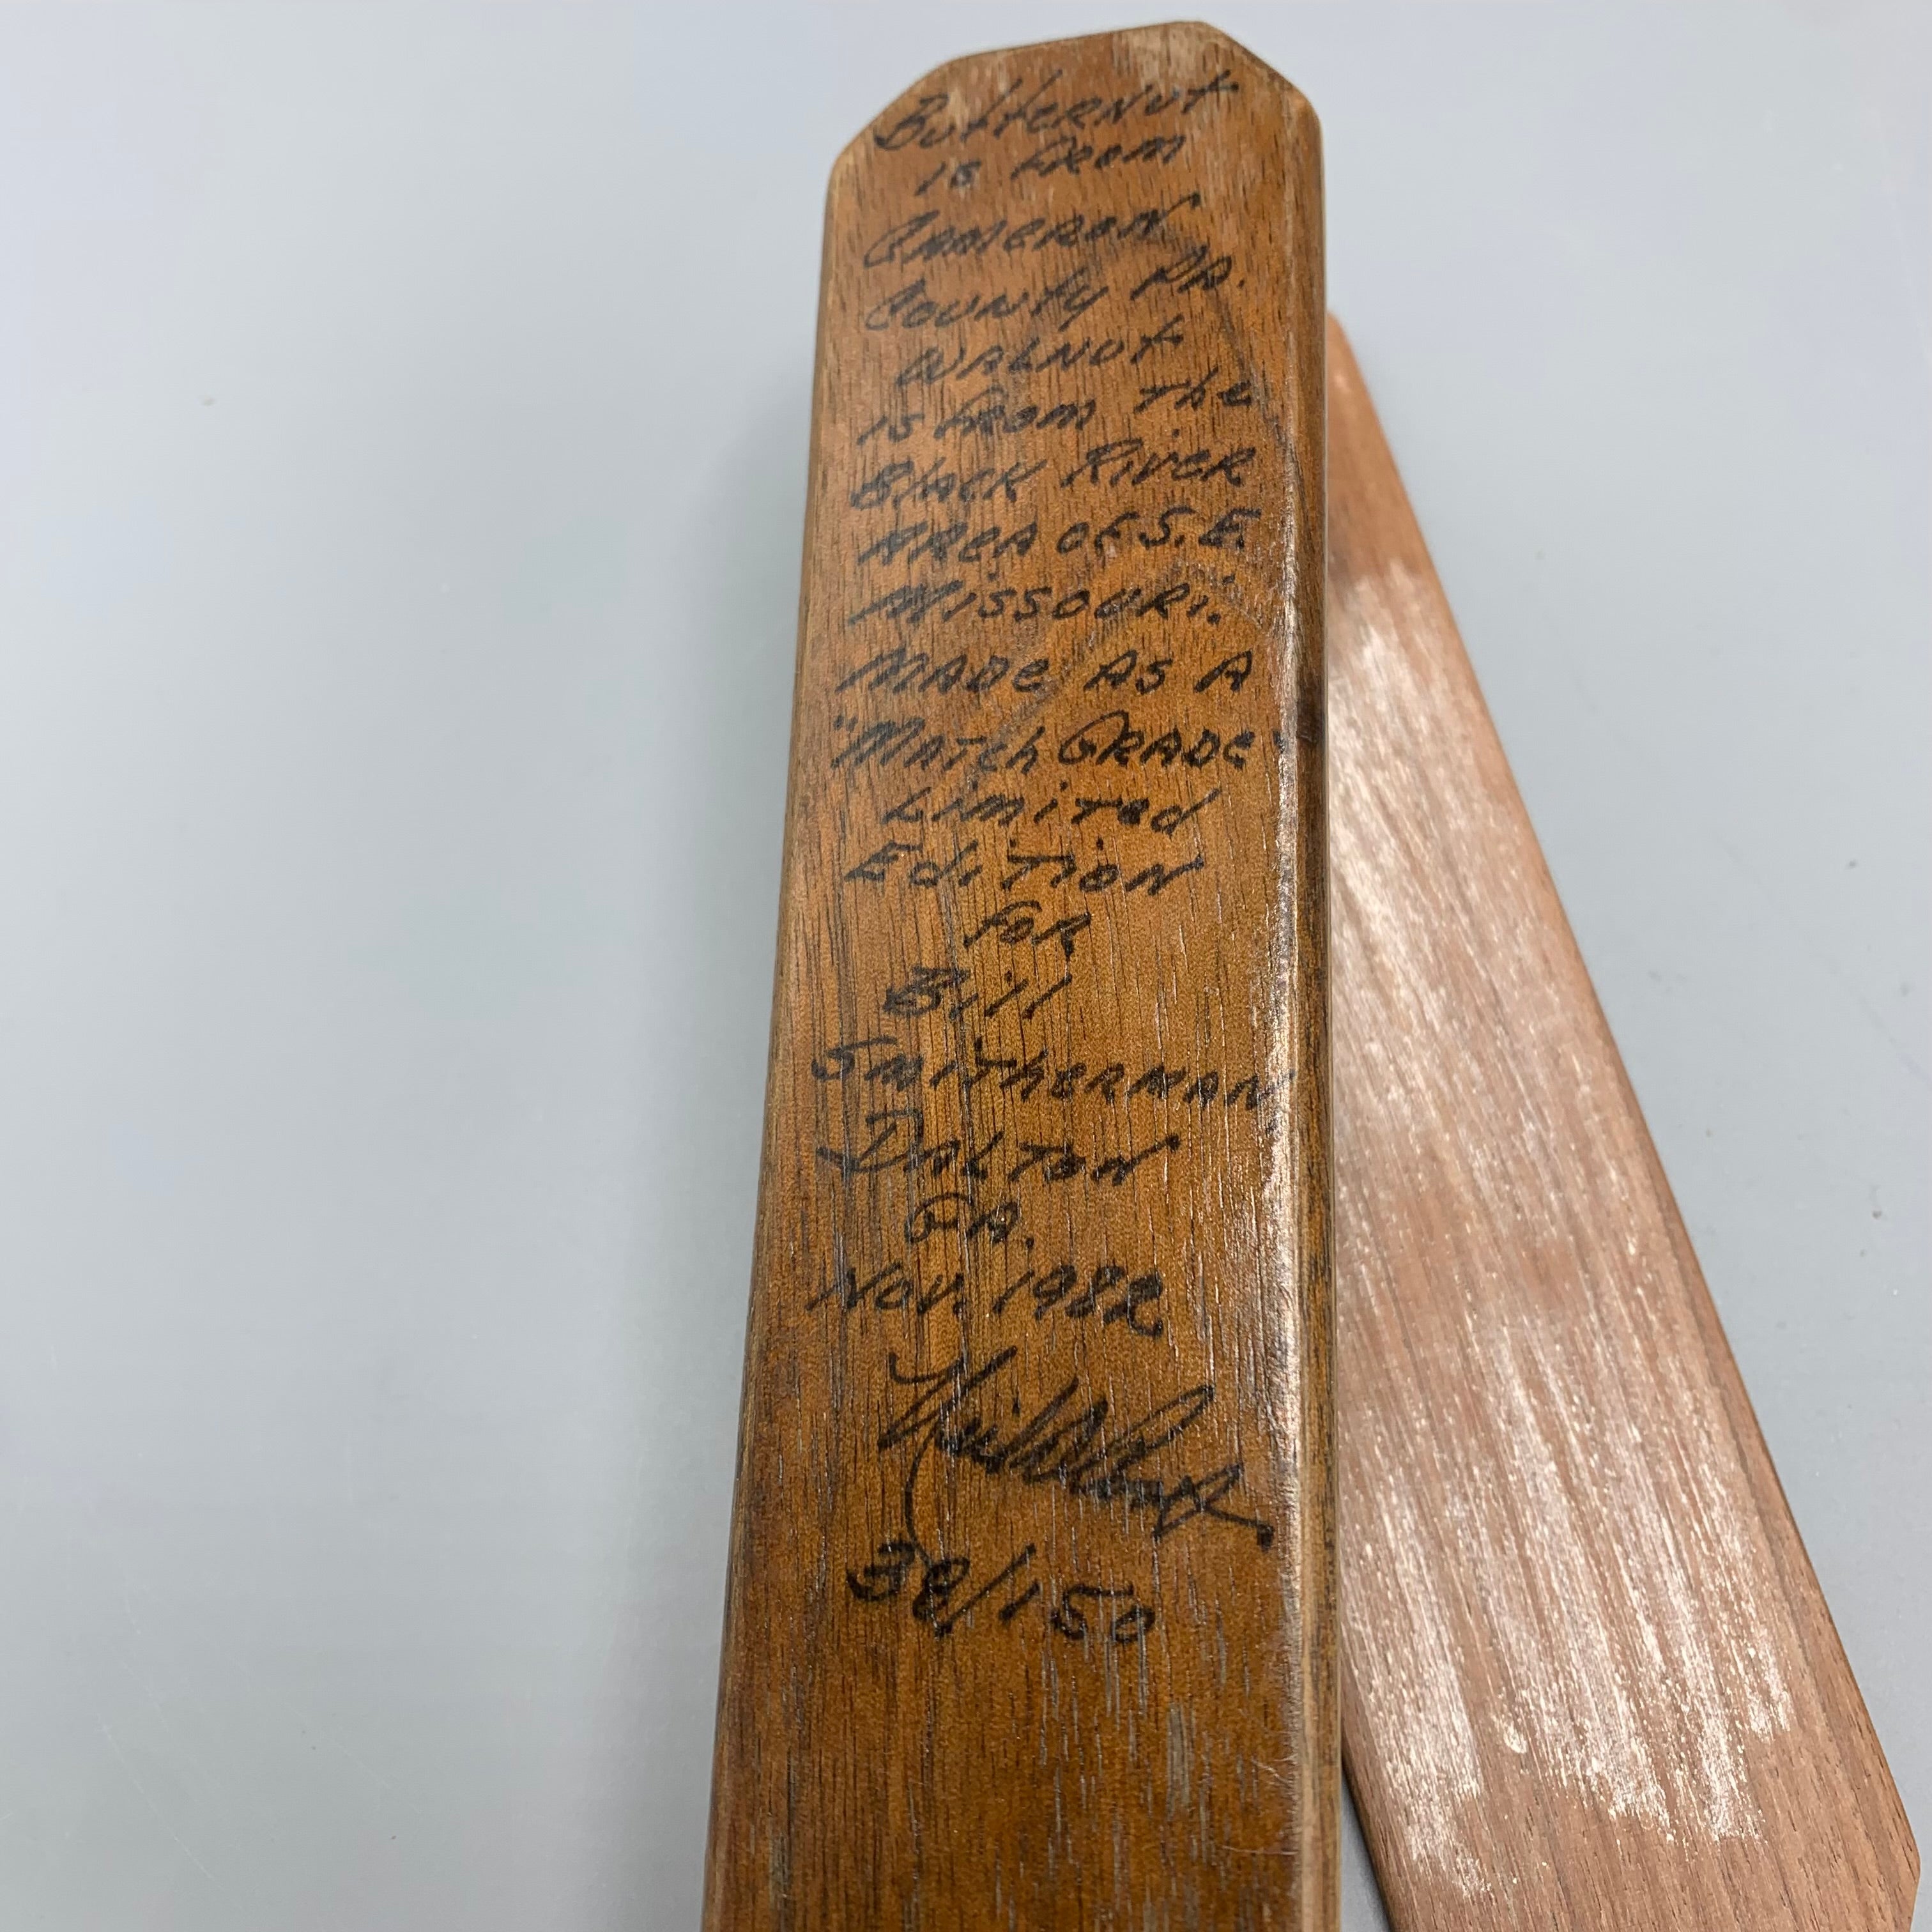 Butternut
is from
Cameron
County Pa.
Walnut
is from the
Black River
Area of S.E.
Missouri.
Made as a
"Match Grade"
Limited
Edition
for
Bill
Smitherman,
Dalton
Ga.
Nov. 1982
/150